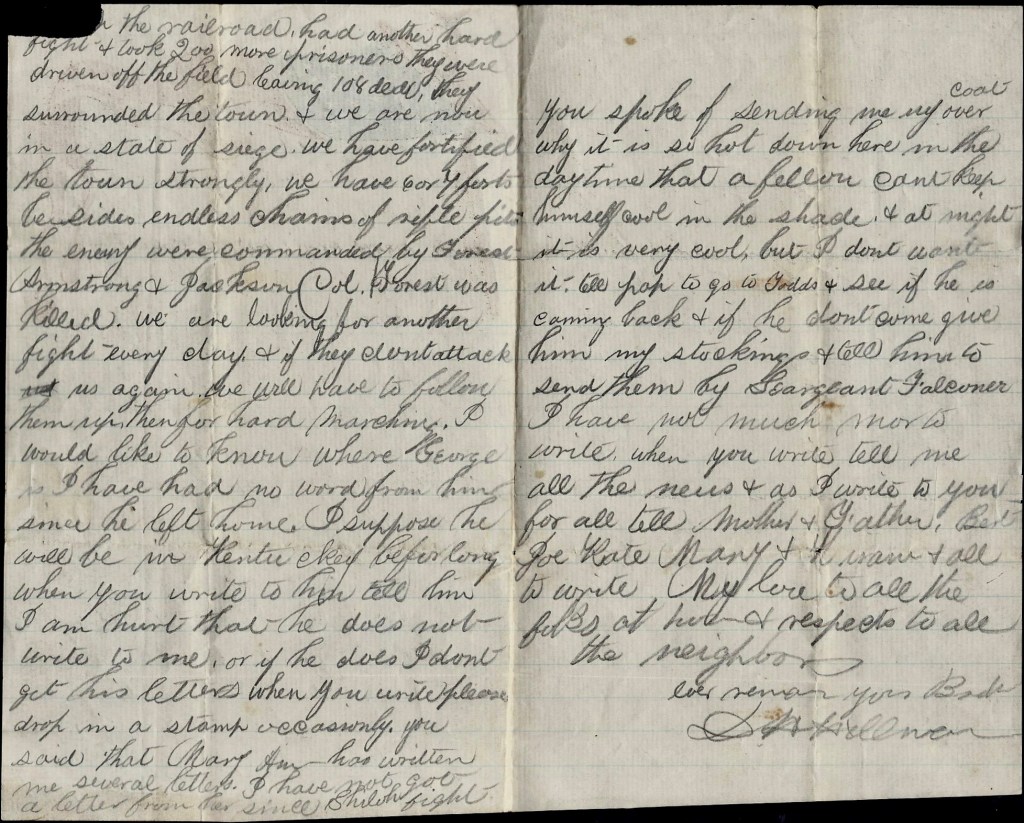 the railroad. had another hard
fight & took 200 more prisoners they were
driven off the field leaving 108 dead, they
surrounded the town. & we are now
in a state of siege. we have fortified
the town strongly, we have 6 or 7 forts
besides endless chains of rifle pits
the enemy were commanded by Forest
Armstrong & Jackson Col. Forest was
Killed. we are looking for another
fight every day. & if they dont attack
us again. we will have to follow
them up, then for hard marching. I
would like to know where George
is I have had no word from him
since he left home. I suppose he
will be in Kentuckey befor long
when you write to him tell him
I am hurt that he does not
write to me, or if he does I dont
get his letters when you write please
drop in a stamp occasionly. you
said that Mary Ann has written
me several letters. I have not got
a letter from her since Shiloh fight.
coat
you spoke of sending me my over
why it is so hot down here in the
daytime that a fellow cant keep
himself cool in the shade. & at night
it is very cool, but I dont want
it. tell pap to go to Todds & see if he is
coming back & if he dont come give
him my stockings & tell him to
send them by Seargeant Falconer
I have not much mor to
write. when you write tell me
all the news & as I write to you
for all tell Mother & Father, Bert
Joe Kate Mary & Hiram & all
to write My love to all the
at home & respects to all
the neighbors
ever remain your